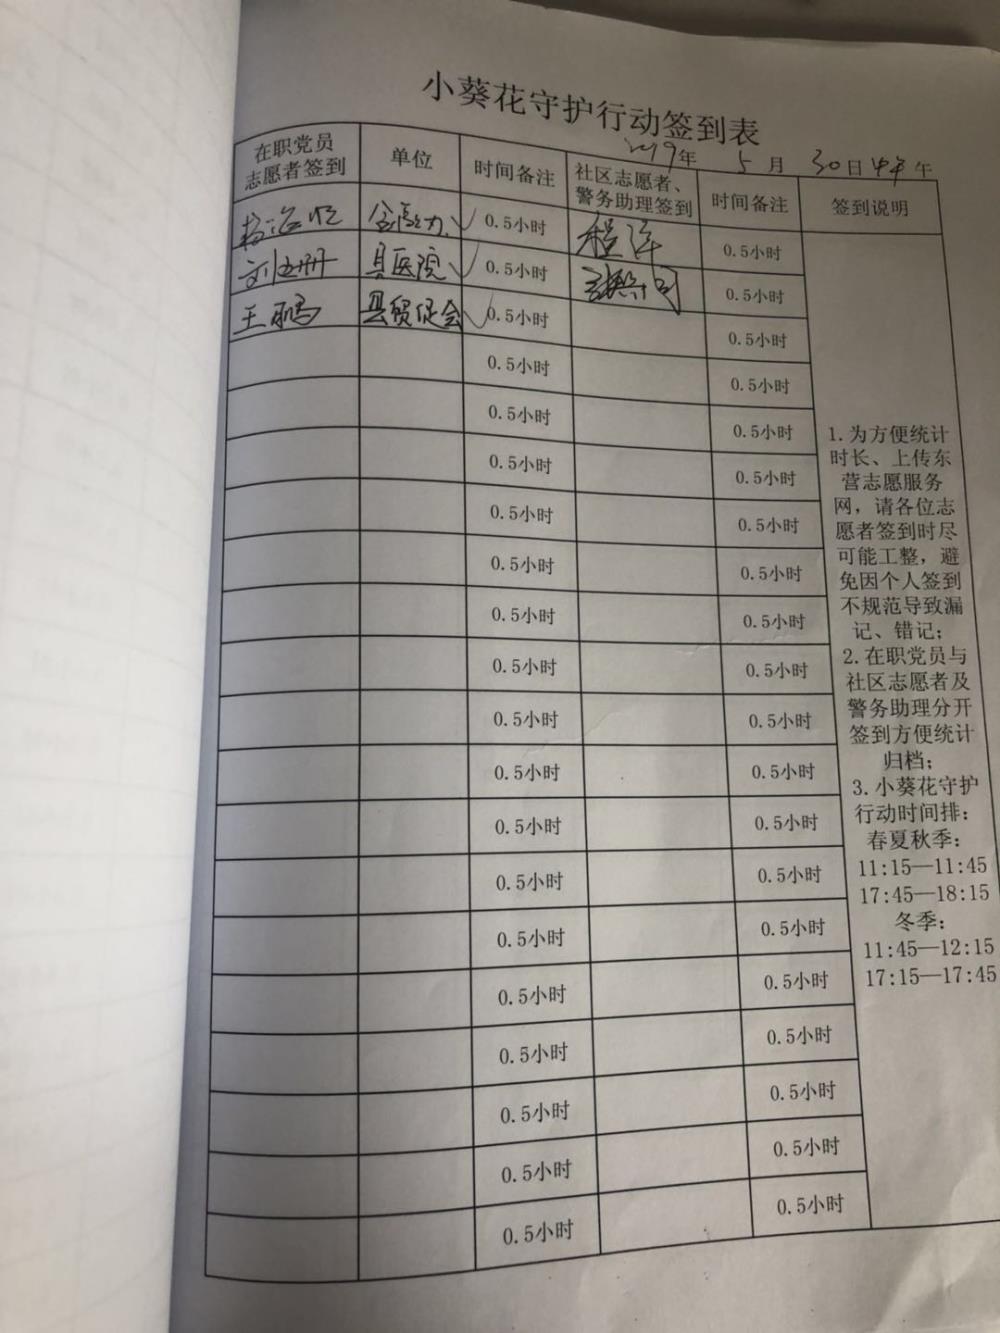 小葵花守护行动签到表
2019年 5月 30日 中午
在职党员
志愿者签到
单位
时间备注
社区志愿者、
警务助理签到
时间备注
签到说明
0.5小时
程洋
0.5小时
刘玉册 县医院 0.5小时
0.5小时
王鹏 县贸促会 0.5小时
0.5小时
0.5小时
0.5小时
0.5小时
0.5小时
0.5小时
0.5小时
0.5小时
0.5小时
0.5小时
0.5小时
0.5小时
0.5小时
0.5小时
0.5小时
0.5小时
0.5小时
0.5小时
0.5小时
0.5小时
0.5小时
0.5小时
0.5小时
0.5小时
0.5小时
0.5小时
0.5小时
0.5小时
0.5小时
0.5小时
0.5小时
0.5小时
0.5小时
0.5小时
0.5小时
0.5小时
0.5小时
1.为方便统计
时长、上传东
营志愿服务
网，请各位志
愿者签到时尽
可能工整，避
免因个人签到
不规范导致漏
记、错记；
2.在职党员与
社区志愿者及
警务助理分开
签到方便统计
归档；
3.小葵花守护
行动时间排：
春夏秋季：
11:15—11:45
17:45—18:15
冬季：
11:45—12:15
17:15—17:45